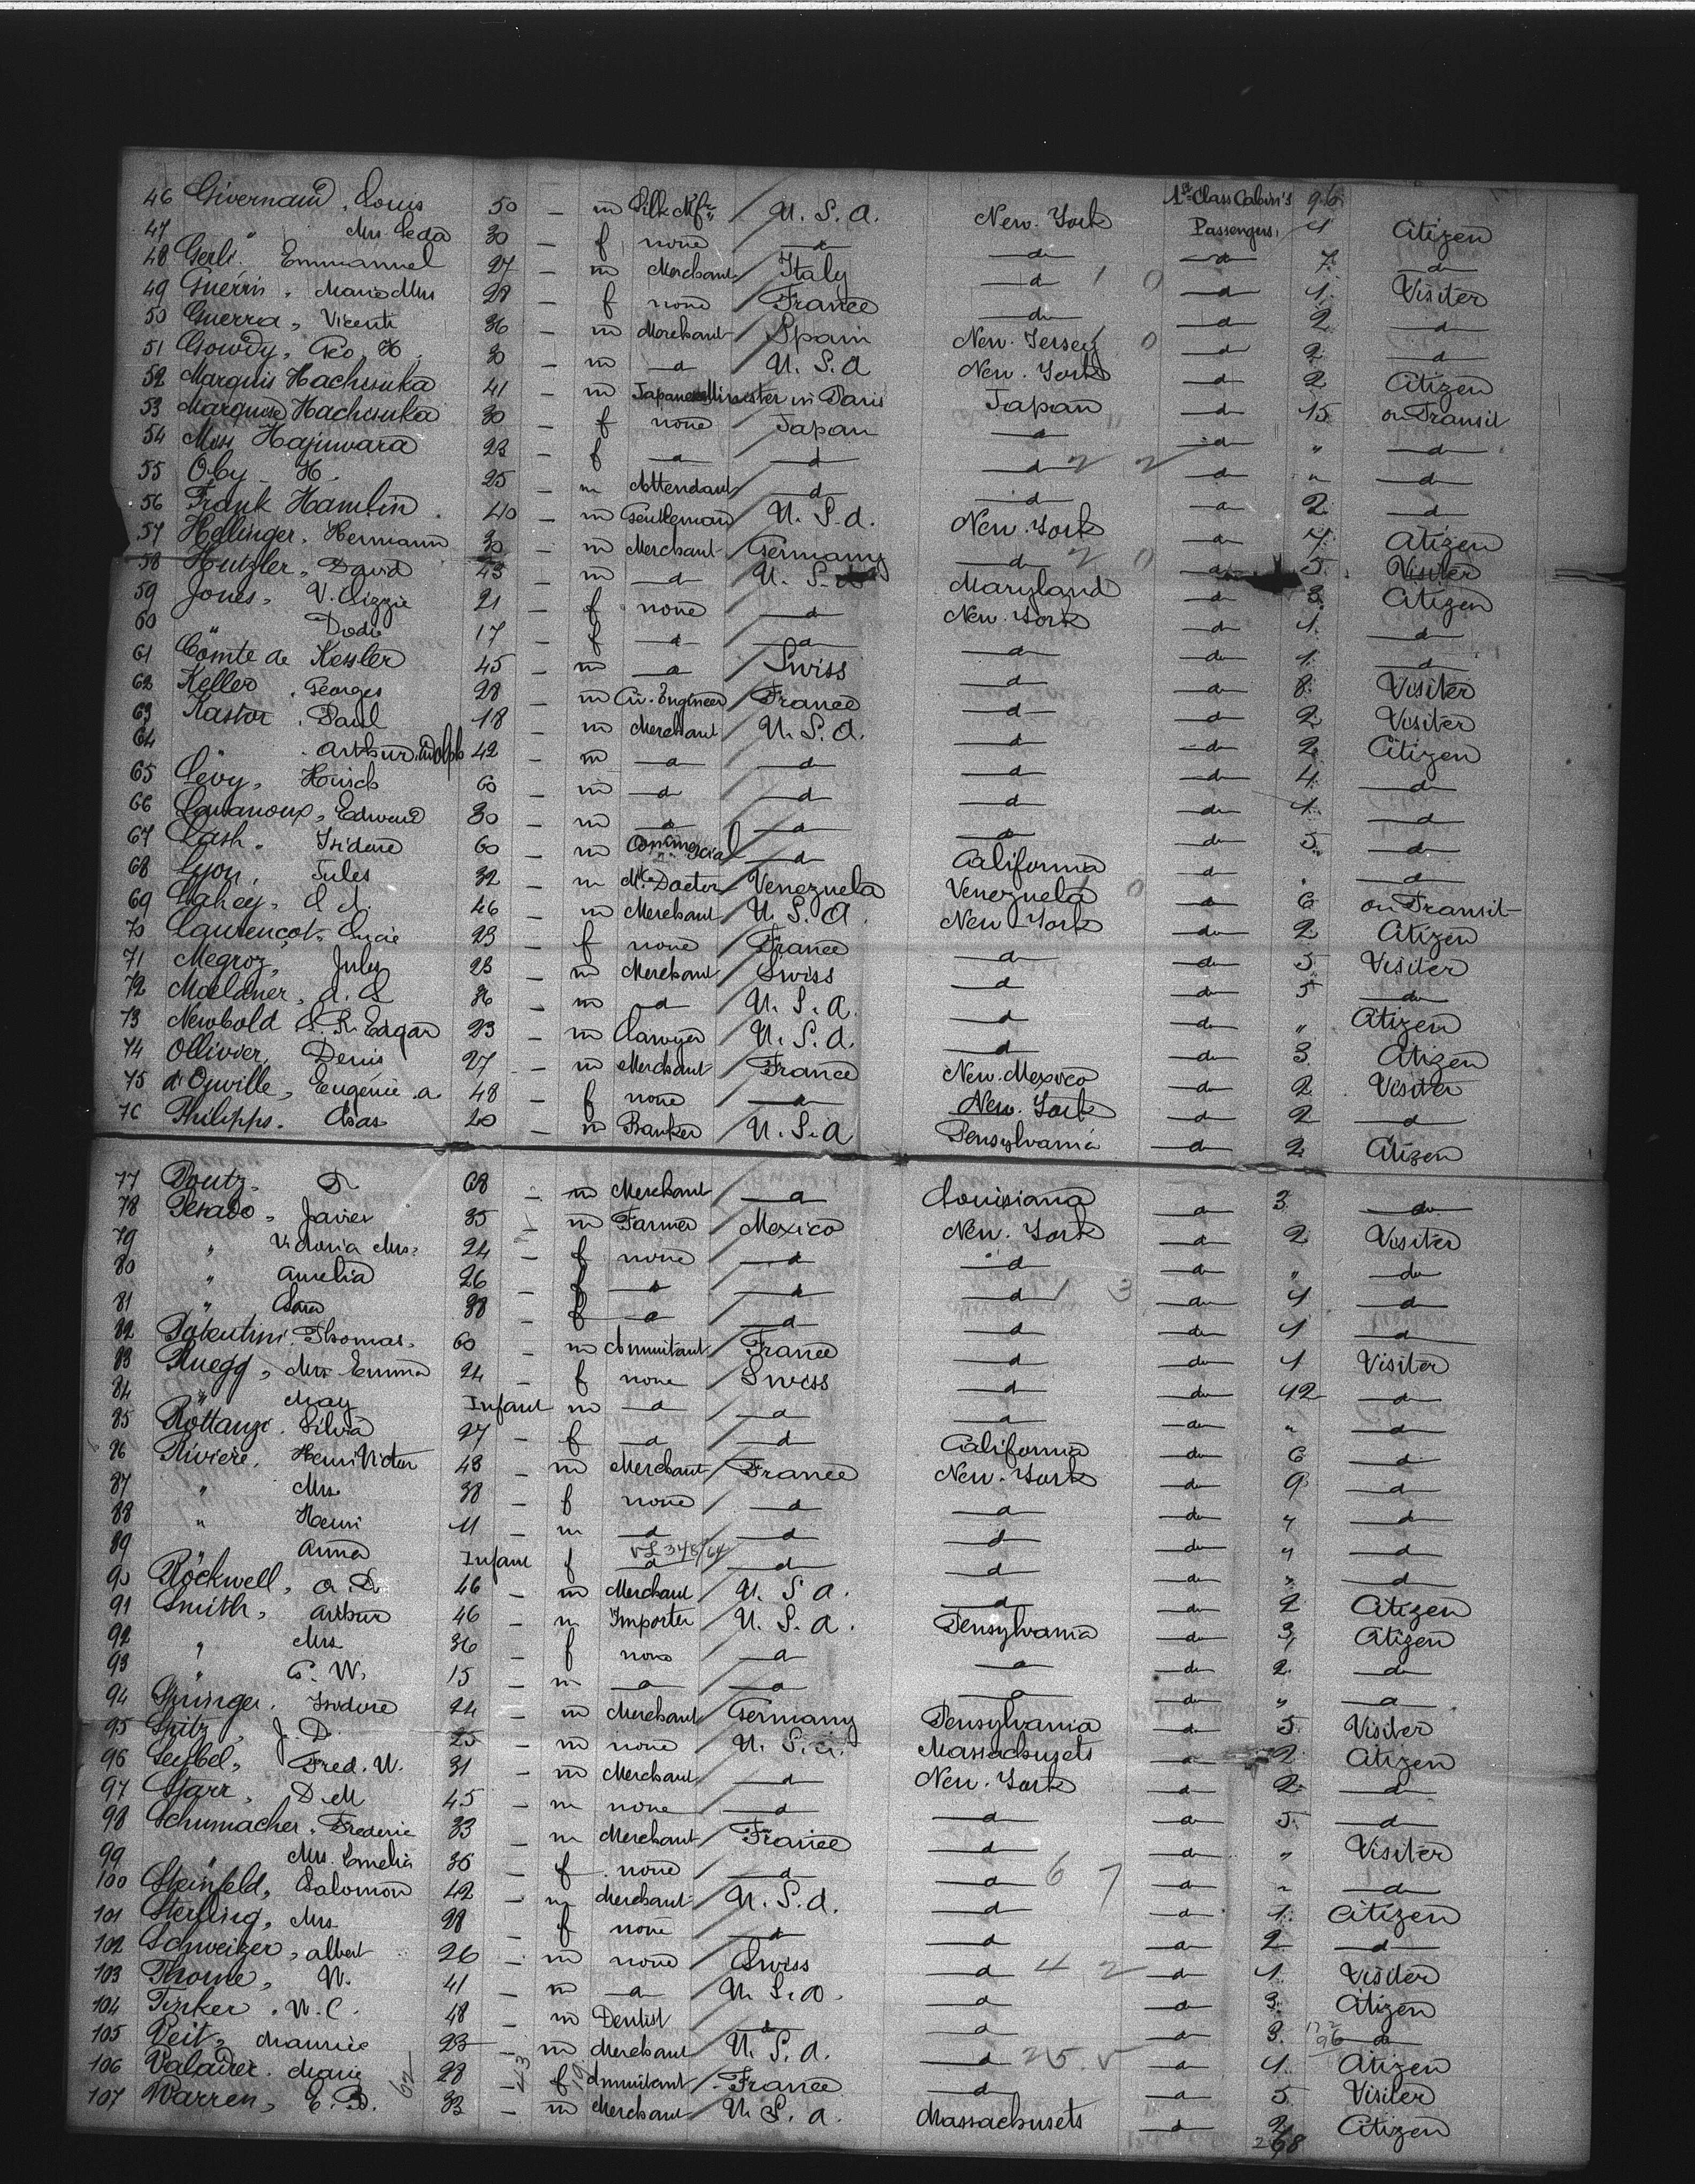 46 Givernaud, Louis 50 - m Silk Mfr / U. S. A. New. York 1st Class Cabin's 96
47 " Mrs. Leda 30 - f none d d Passengers, 1 Citizen
48 Gerli. Emmanuel 27 - m Merchant / Italy d 1 0 d 7. d
49 Guérin, Marie Mrs 28 - f none / France d d 1. Visiter
50 Guerra, Vicente 36 - m Merchant / Spain New. Jersey 0 d 2 d
51 Gowdy, Geo. H. 30 - m d U. S. A New. York d 2 d
52 Marquis Hachisuka 41 - m Japanese Minister in Paris Japan d 2 Citizen
53 Marquise Hachisuka 30 - f none / Japan d d 15 on Transit
54 Miss Hajiwara 23 - f d d d 2 2 d " d
55 Oby H. 25 - m Attendant d d d " d
56 Frank Hamlin 40 - m Gentleman U. S. A. New. York d 2 d
57 Hellinger, Hermann 30 - m Merchant / Germany d 2 0 d 7. Citizen
58 Hutzler, David 43 - m d U. S. Maryland d 5. Visiter
59 Jones, V. Lizzie 21 - f none / d New. York d 3. Citizen
60 " Dode 17 - f d d d d 1. d
61 Comte de Kessler 45 - m d Swiss d d 1. d
62 Keller, Georges 28 - m Civ. Engineer / France d d 8. Visiter
63 Kastor, Paul 18 - m Merchant / U. S. A. d d 2 Visiter
64 " Arthur Adolph 42 - m d d d d 2 Citizen
65 Lévy, Hirsch 60 - m d d d d 4. d
66 Edward 30 - m d d d d 1. d
67 Lash, Isidore 60 - m Commercial d California d 5. d
68 Lyon, Jules 32 - m Doctor / Venezuela Venezuela 0 d d
69 Lahey, 46 - m Merchant / U. S. A. New York d 6 on Transit
70 Laurençot, Lucie 23 - f none / France d d 2 Citizen
71 Megroz, Jules 23 - m Merchant / Swiss d d 5. Visiter
72 36 - m d U. S. A. d d 5 d
73 Newbold Edgar 23 - m Lawyer / U. S. A. d d " Citizen
74 Ollivier, Denis 27 - m Merchant / France New. Mexico d 3. Citizen
75 Eugenie. a 48 - f none / d New. York d 2. Visiter
76 Philipps. Asas 20 - m Banker / U. S. A Pensylvania d 2 d
d 2 Citizen
77 D 68 - m Merchant / d Louisiana d 3. d
78 Pesado, Javier 35 - m Farmer Mexico New. York d 2 Visiter
79 " Victoria Mrs. 24 - f none / d d d " d
80 " Amelia 26 - f d d d 1 3 d 1 d
81 " Sara 38 - f d d d d 1 d
82 Thomas. 60 - m France d d 1 Visiter
83 Ruegg, Mrs Emma 24 - f none / Swiss d d 12 d
84 " May Infant m d d d d " d
85 Rottanzi. Silvia 27 - f d d California d 6 d
86 Riviere. Henri Victor 43 - m Merchant / France New. York d 9 d
87 " Mrs. 38 - f none / d d d " d
88 " Henri 11 - m d d d d " d
89 " Anna Infant f d d d d " d
90 Rockwell, A. D. 46 - m Merchant / U. S A. d d 2 Citizen
91 Smith, Arthur 46 - m Importer / U. S. A. Pensylvania d 3, Citizen
92 " Mrs. 36 - f none d d d 2. d
93 " W. 15 - m d d d d " d
94 Springer. Isidore 24 - m Merchant / Germany Pensylvania d 5. Visiter
95 Spitz, J. D. 25 - m none / U. S. A. Massachusets d 2. Citizen
96 Seybel, Fred. W. 31 - m Merchant / d New. York d 2. d
97 Starr, D. M 45 - m none / d d d 5. d
98 Schumacher, Frederic 33 - m Merchant / France d d " Visiter
99 " Mrs. Emelia 36 - f none / d d 6 7 d " d
100 Steinfeld, Salomon 42 - m Merchant / U. S. A. d d 1. Citizen
101 Sterling, Mrs 28 - f none / d d d 2 d
102 Schweizer, Albert 26 - m none / Swiss d 4 2 d 1. Visiter
103 Thorne, W. 41 - m d U. S. A. d d 3. Citizen
104 Tinker. W. C. 48 - m Dentist / d d d 3. d
105 Veit, Maurice 23 - m Merchant / U. S. A. d 25. 5 d 1. Citizen
106 Valadier. Marie 28 - f / France d d 5 Visiter
107 Warren, E. B. 33 - m Merchant / U. S. A. Massachusets d 2. Citizen
268